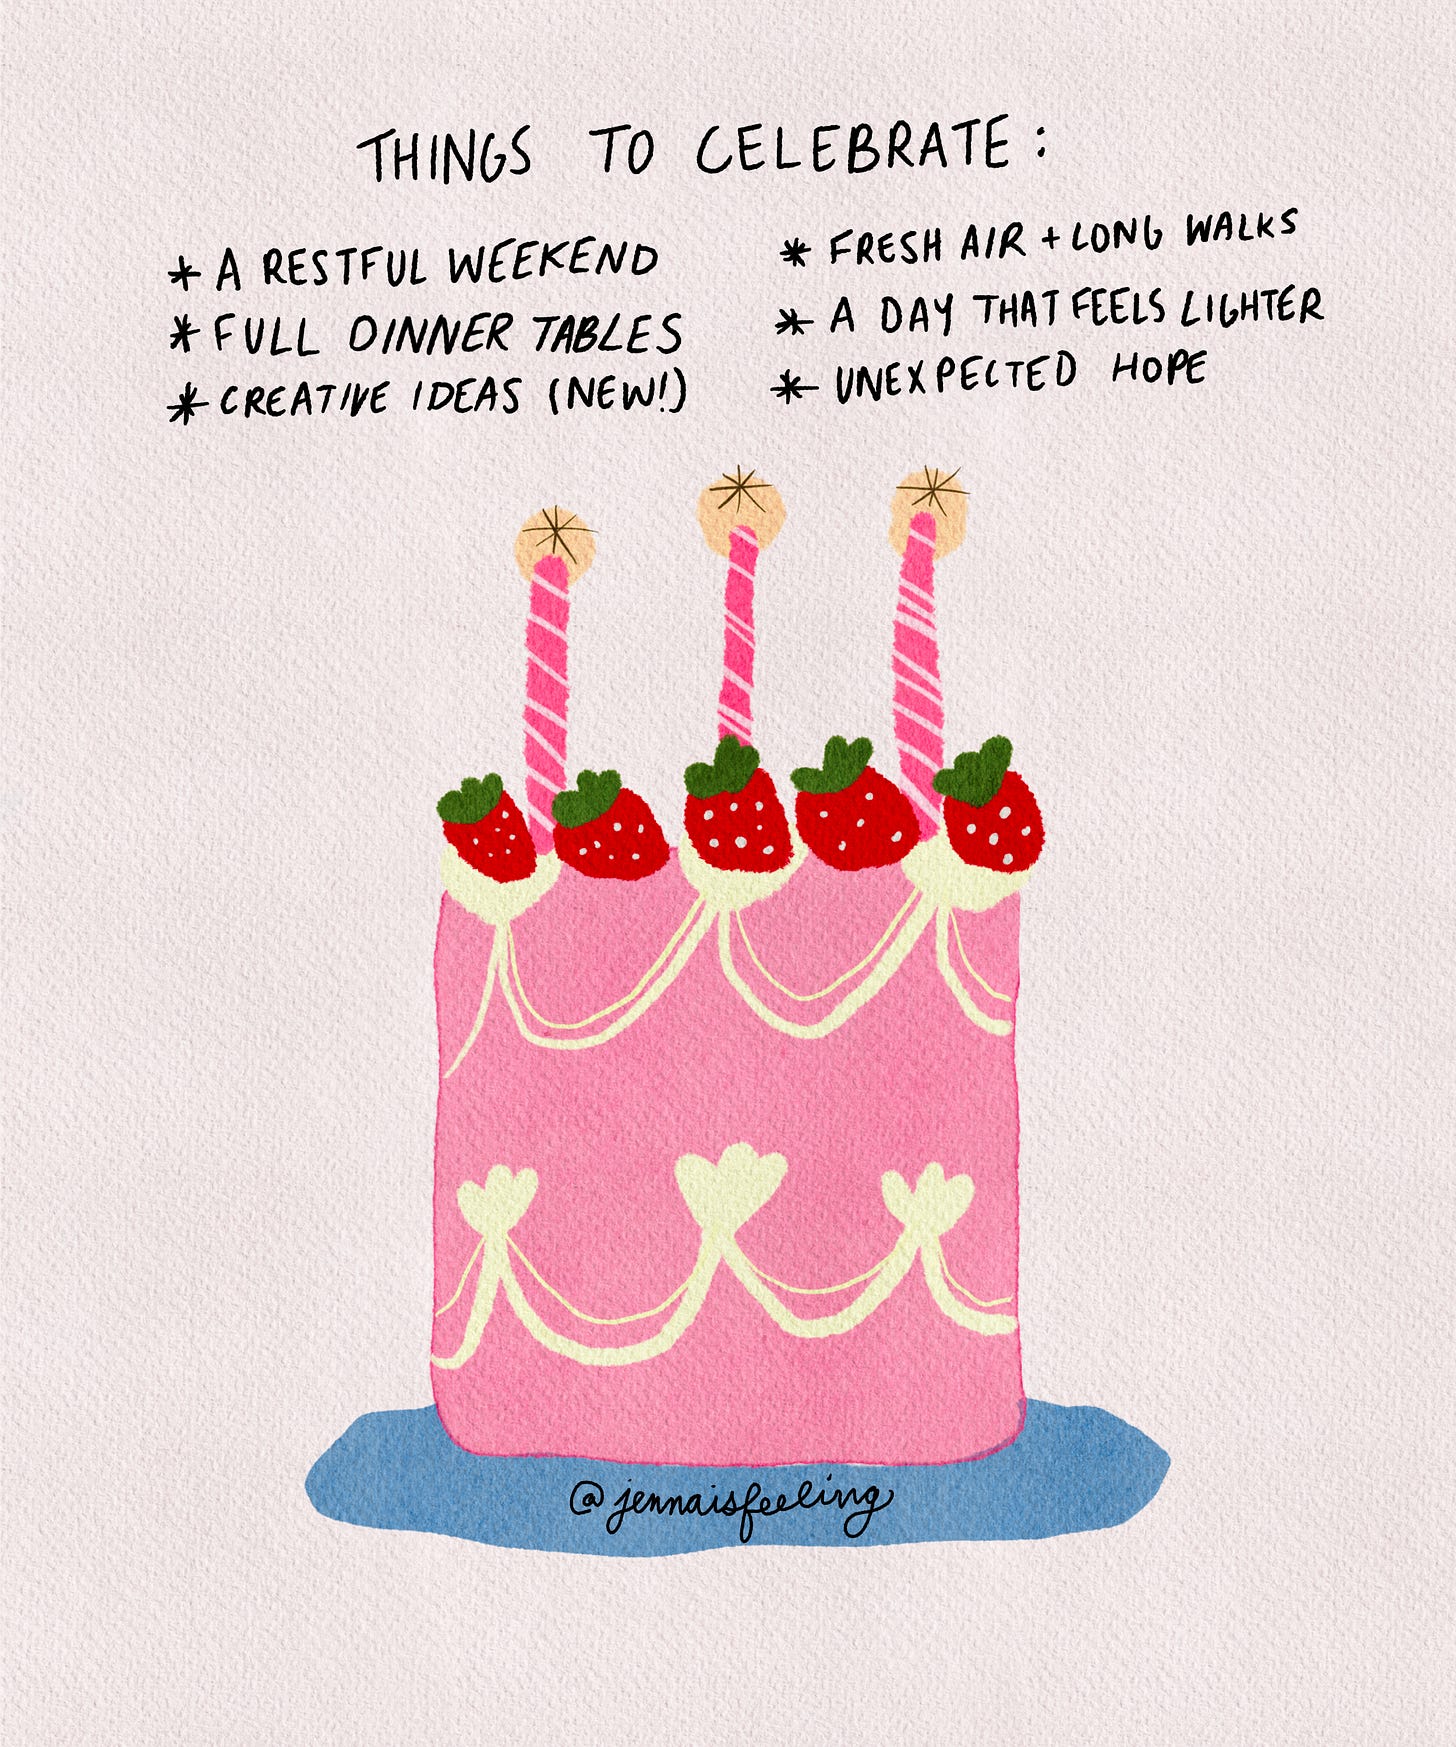 THINGS TO CELEBRATE:
* A RESTFUL WEEKEND
* FULL DINNER TABLES
* CREATIVE IDEAS (NEW!)
* FRESH AIR + LONG WALKS
* A DAY THAT FEELS LIGHTER
* UNEXPECTED HOPE
@jennaisfeeling